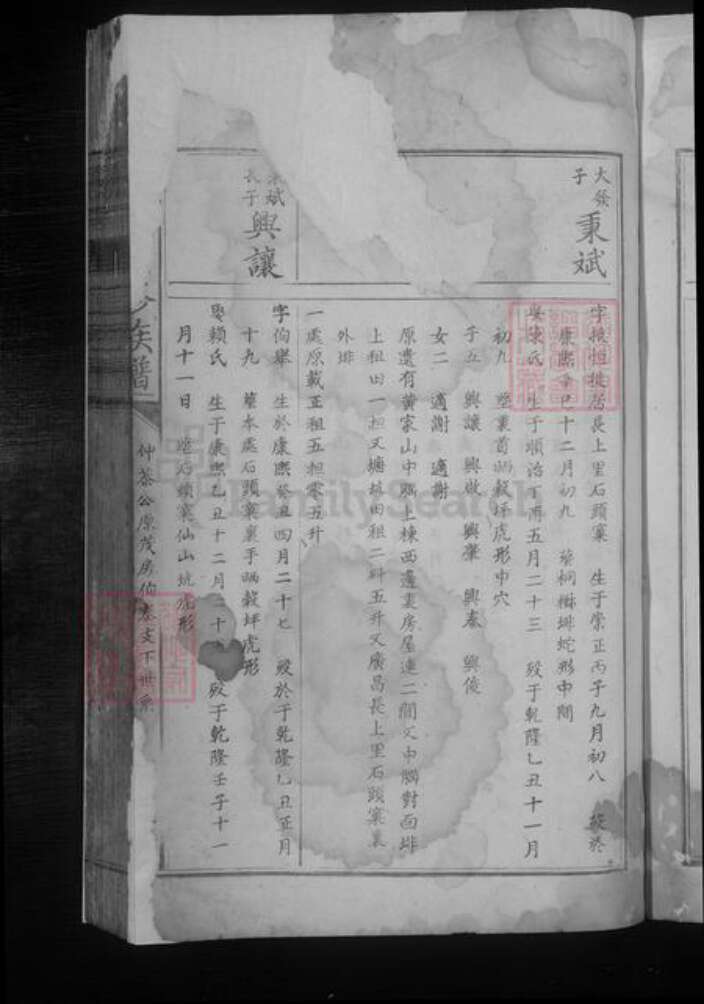 大
子
秉斌
字 居長上里石頭寨 生于崇正丙子九月初八 歿於
康熙辛巳十二月初九 葬桐 排蛇形中間
娶陳氏 生于順治丁酉五月二十三 歿于乾隆乙丑十一月
初九 裏首晒穀坪虎形中穴
子五 興讓 興啟 興肇 興泰 興俊
女二 適謝 適謝
原遺有黃家山中腦上棟西邊裏房屋連二間又中腦對面排
上租田一担又塘坵田租二斗五升又廣昌長上里石頭寨裏
外排
一處原載正租五担零五升
斌
長子
興讓
字伯舉 生於康熙癸丑四月二十七 歿於于乾隆乙丑正月
十九 葬本處石頭寨裏手晒穀坪虎形
娶賴氏 生于康熙乙丑十二月二十 歿于乾隆壬子十一
月十一日 石頭寨仙山坑虎形
族譜
仲茶公原茂房伯泰支下世系
FamilySearch